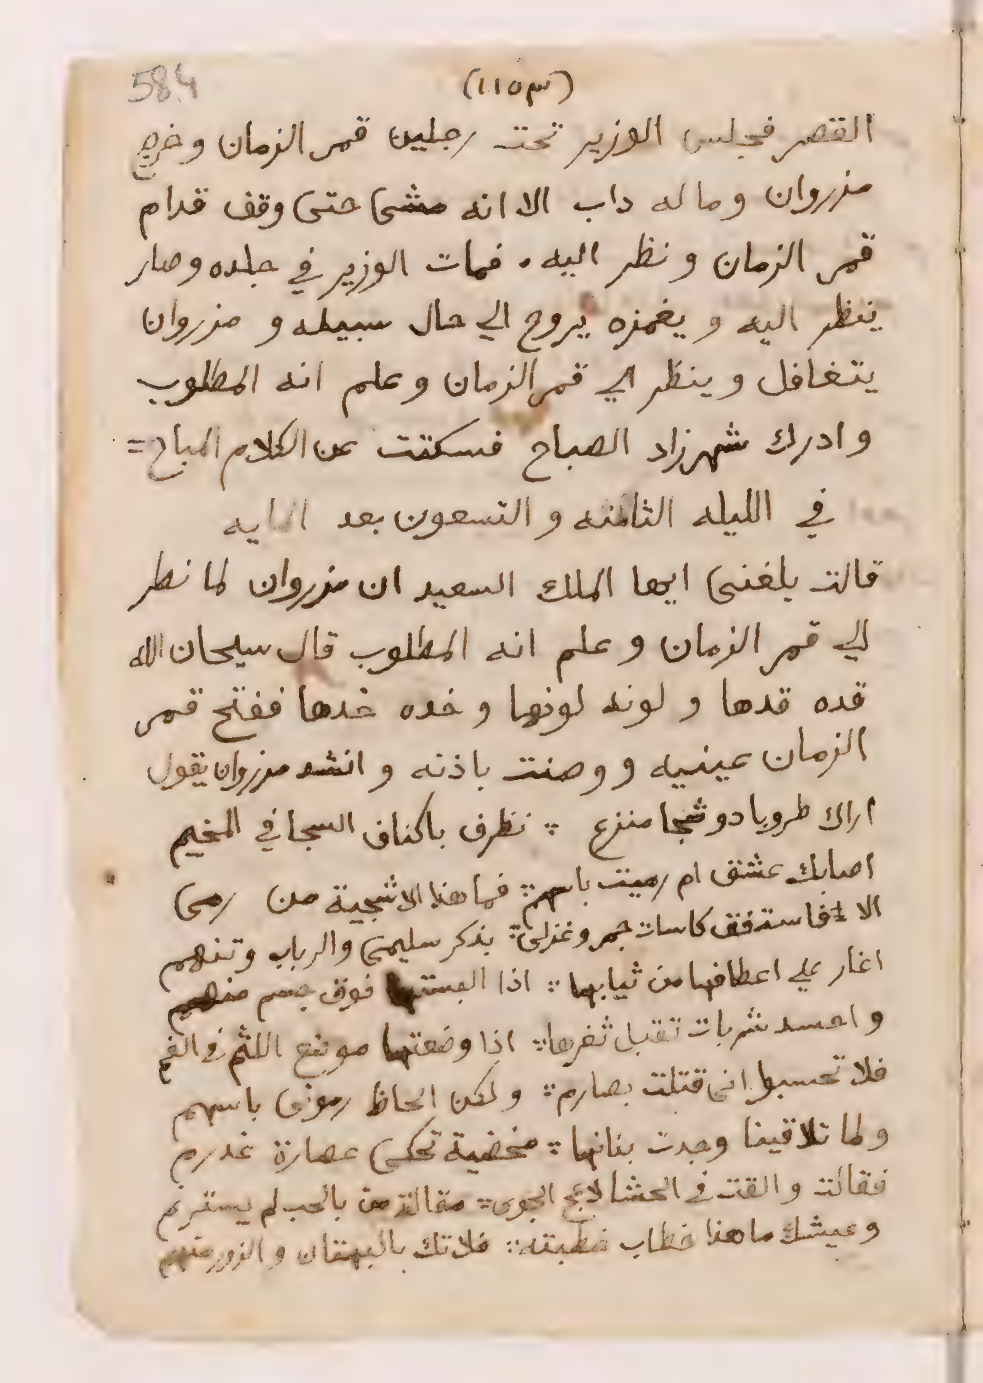 584
(١١٥٣)
القصر فجلس الوزير تحت رجلين قمر الزمان وخرج
مزروان وماله داب الا انه مشى حتى وقف قدام
قمر الزمان ونظر اليه . فمات الوزير في جلده وصار
ينظر اليه ويغمزه يروح الي حال سبيله و مزروان
يتغافل وينظر الي قمر الزمان وعلم انه المطلوب
وادرك شهرزاد الصباح فسكتت عن الكلام المباح =
في الليله الثامنه و التسعون بعد المايه
قالت بلغنى ايها الملك السعيد ان مزروان لما نطر
الي قمر الزمان وعلم انه المطلوب قال سبحان الله
قده قدها و لونه لونها وخده خدها ففتح قمر
الزمان عينيه ووصنت باذنه و انشد مزروان يقول
اراك طروبا دو شجا منزع ∴ نظرف باكناف السجا في المخيم
اصابك عشق ام رميت باسهم ∴ فما هذا الا شجية من رمى
الا فاستقف كاسات جمر وغنزلى ∴ بذكر سليمى والرباب وتنهم
اغار علي اعطافها من ثيابها ∴ اذا البستها فوق جسم منهم
واحسد شربات تقبل ثغرها ∴ اذا وضعتها موضع اللثم في الفم
فلا تحسبوا انى قتلت بصارم ∴ ولكن الحاظ رمونى باسهم
ولما تلاقينا وجدت بنانها ∴ مخضبة تحكى عصارة غدرم
فقالت والقت في الحشا لاعج الجوى ∴ مقالة من بالحب لم يستريم
وعيشك ما هذا خطاب خطبته ∴ فلا تك بالبهتان و الزور متهم